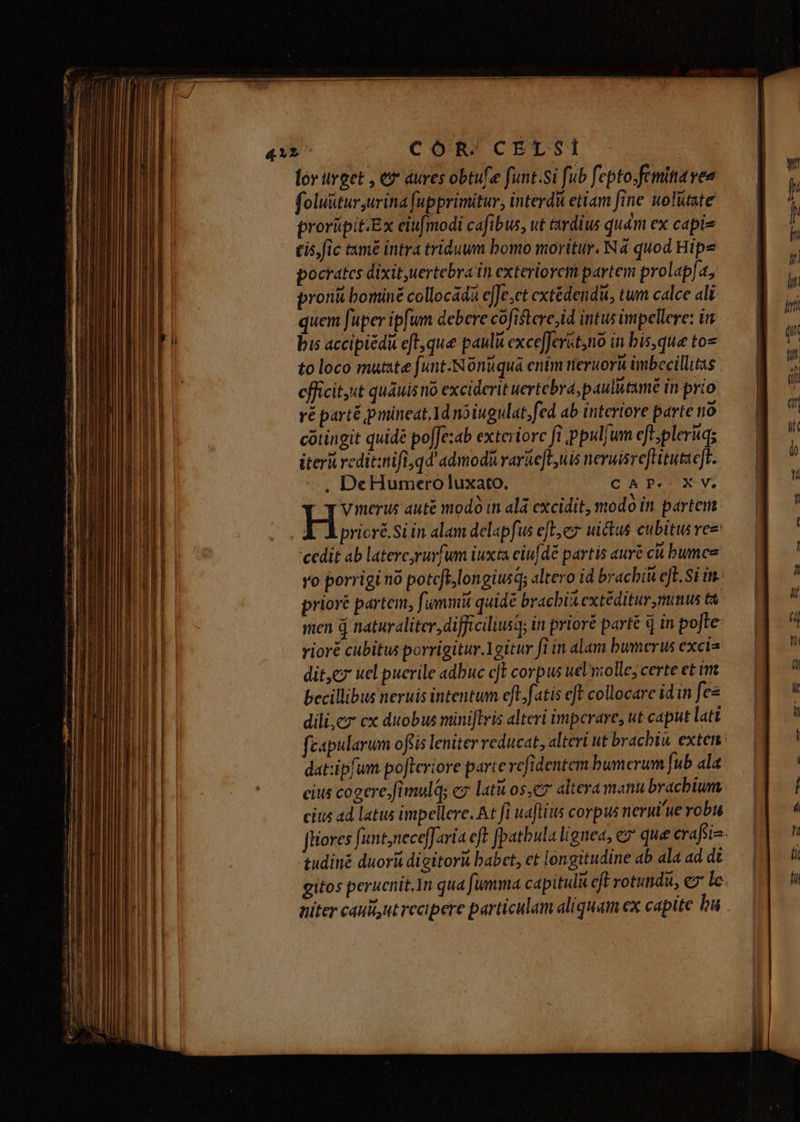 412 COR. CELSI
lor urget, et aures obtusæ sunt. Si sub septo, femina vea
soluũtur, urina supprimitur, interdũ etiam sine uolũtate
prorũpit. Ex eiusmodi casibus, ut tardius quàm ex capi=
tis, sic tamẽ intra triduum homo moritur. Nã quod Hip=
pocrates dixit, uertebra in exteriorem partem prolapsa,
pronũ hominẽ collocãdũ esse, et extẽdendũ, tum calce alĩ
quem super ipsum debere cõsistere, id intus impellere: in
his accipiẽdũ est, quæ paulũ excesserũt, nõ in his, quæ to=
to loco mutatæ sunt. Nõnũquã enim neruorũ imbecillitas
efficit, ut quãuis nõ exciderit uertebra, paulũtamẽ in prio
rẽ partẽ ꝓmineat. Id nõ iugulat, sed ab interiore parte nõ
cõtingit quidẽ posse: ab exteriore si ꝓpulsum est, plerũq;
iterũ redit: nisi, qd' admodũ rarũ est, uis neruis restituta est.
De Humero luxato. CAP. XV.
HVmerus autẽ modo in alã excidit, modò in partem
priorẽ. Si in alam delapsus est, et uictus cubitus re=
cedit ab latere, rursum iuxta eiusdẽ partis aurẽ cũ hume=
ro porrigi nõ potest, longiusq; altero id brachiũ est. Si in
priorẽ partem, summũ quidẽ brachiũ extẽditur, minus ta
men q̃ naturaliter, difficiliusq; in priorẽ partẽ q̃ in poste
riorẽ cubitus porrigitur. Igitur si in alam humerus exci=
dit, et uel puerile adhuc est corpus uel molle, certe et im
becillibus neruis intentum est, satis est collocare id in se=
dili, et ex duobus ministris alteri imperare, ut caput lati
scapularum ossis leniter reducat, alteri ut brachiũ exten
dat: ipsum posteriore parte residentem humerum sub ala
eius cogere, simulq; et latũ os, et altera manu brachium
eius ad latus impellere. At si uastius corpus neruiue robu
stiores sunt, necessaria est spathula lignea, et quæ crassi=
tudinẽ duorũ digitorũ habet, et longitudine ab ala ad di
gitos peruenit. In qua summa capitulũ est rotundũ, et le
niter cauũ, ut recipere particulam aliquam ex capite hu